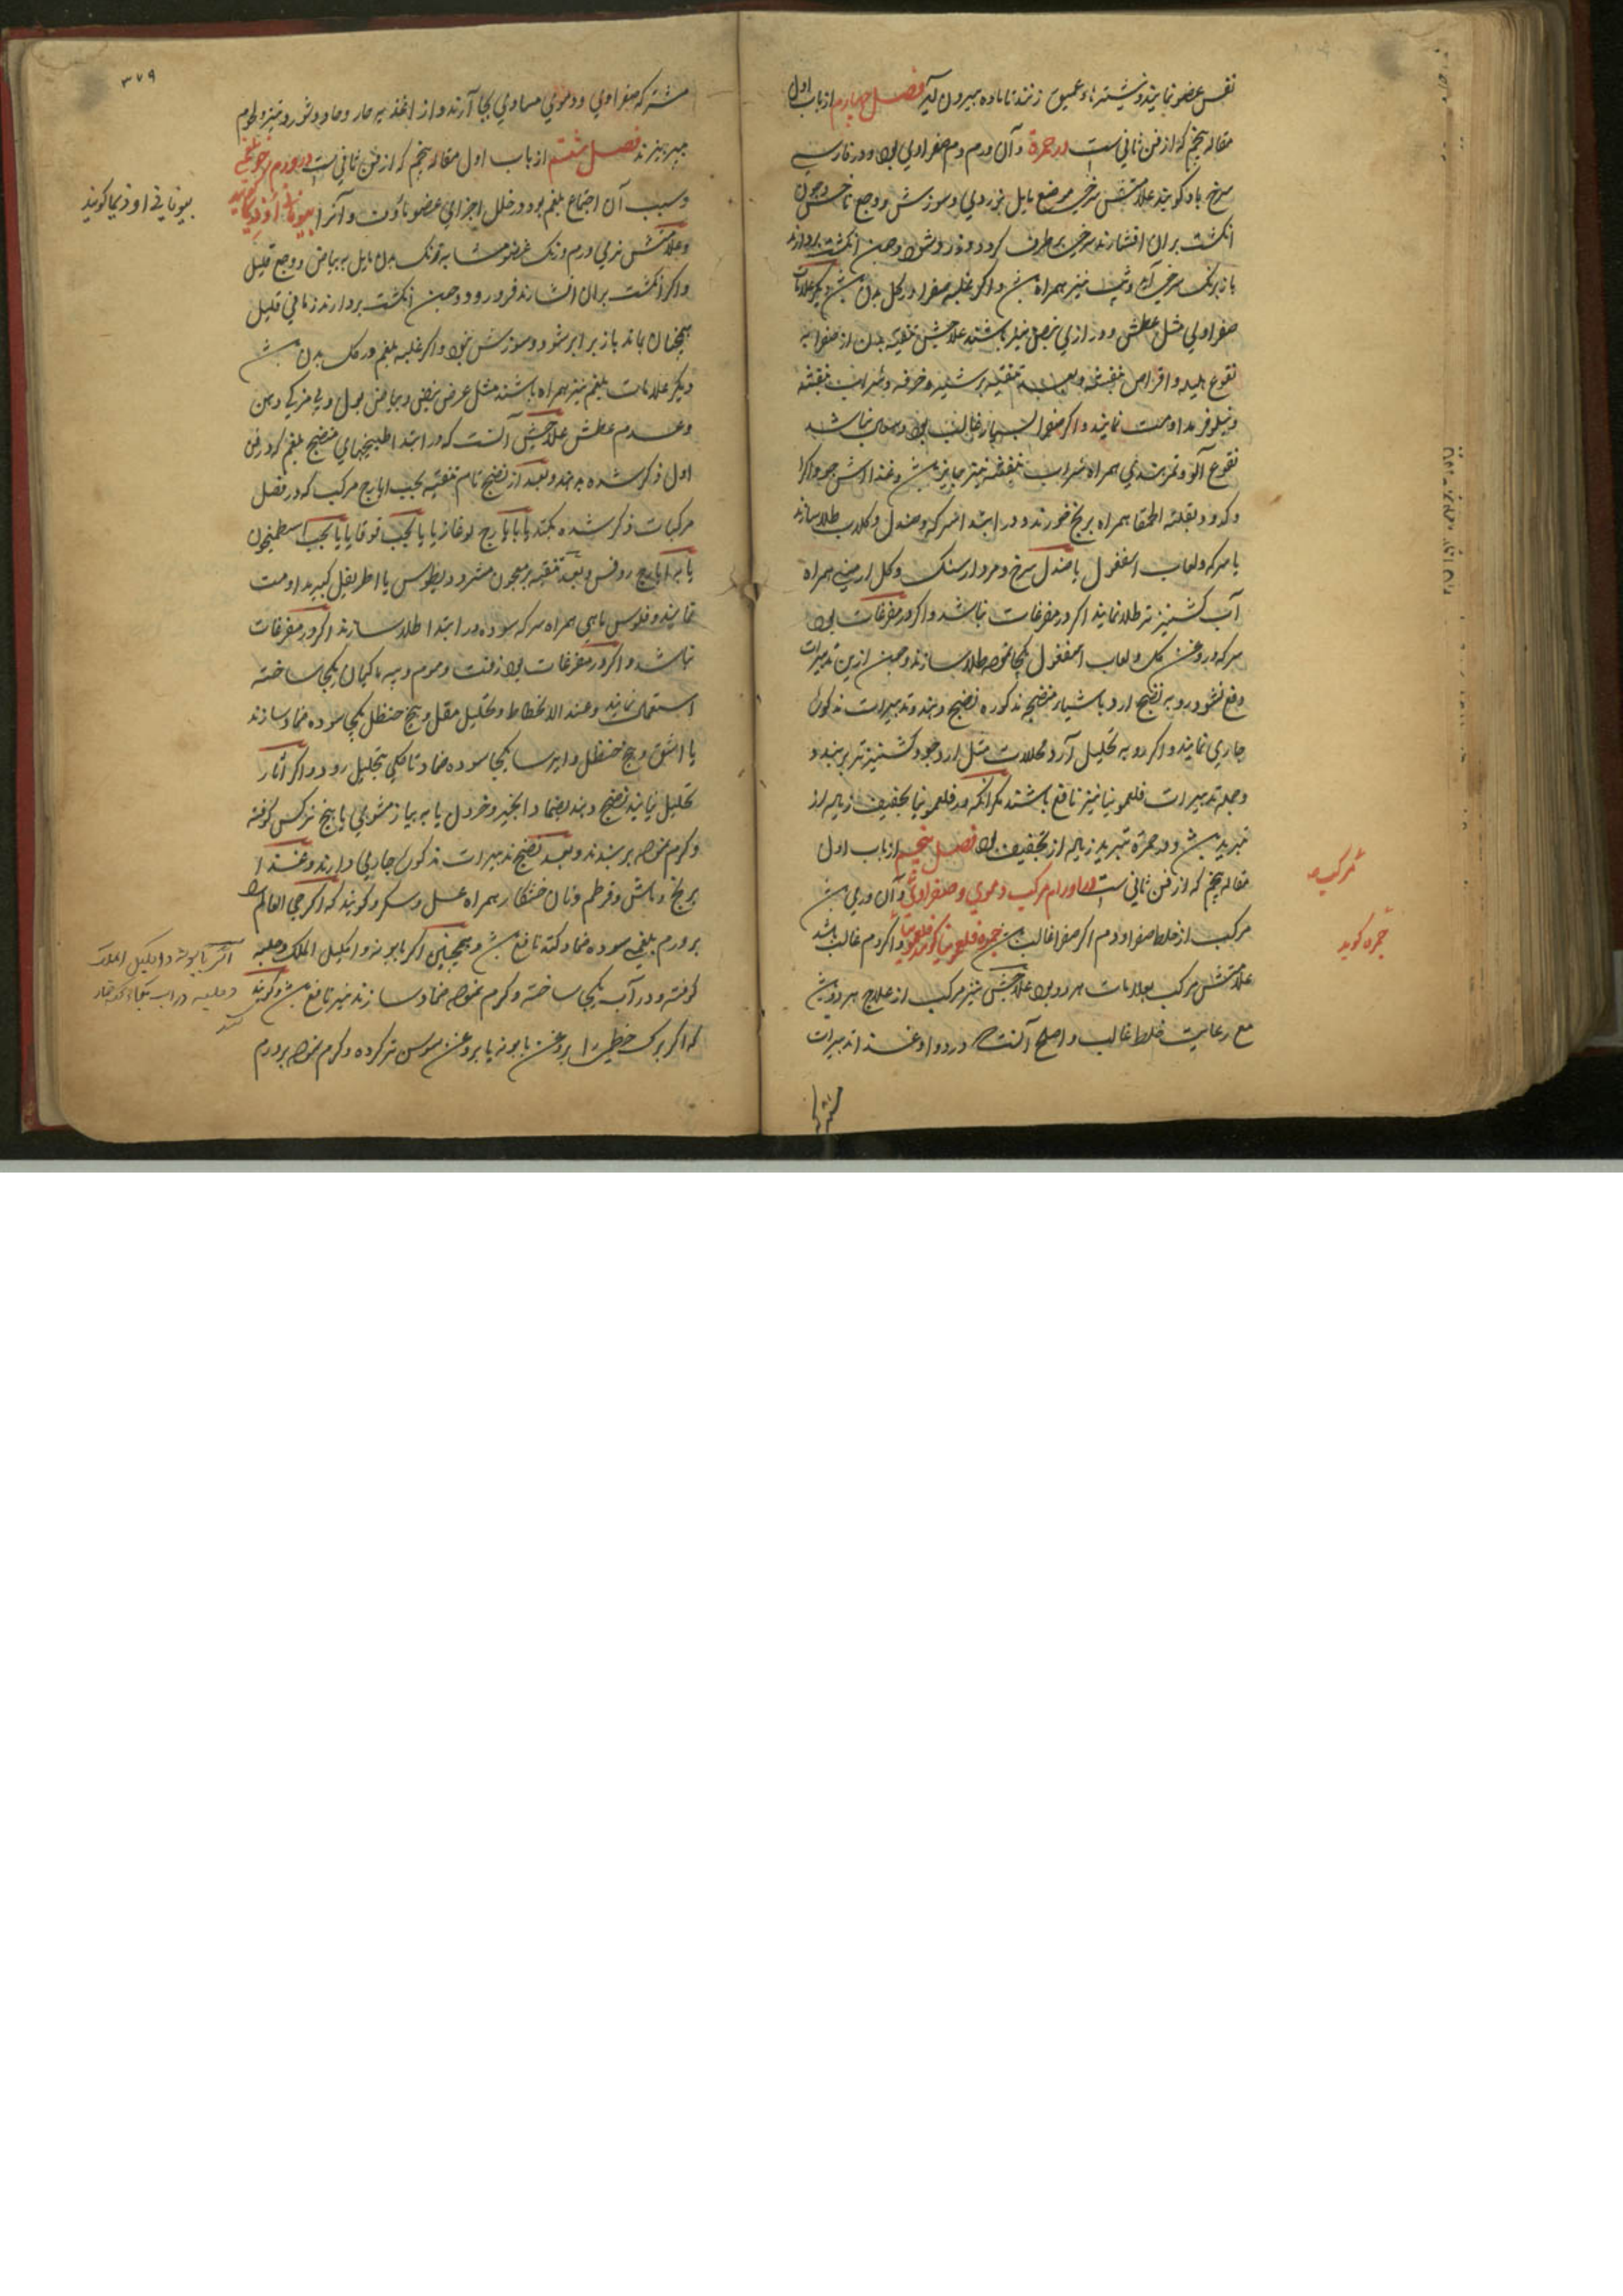 نفس عضو نمایند و نیشترهاء عمیق زنند تا ماده بیرون آید فصل چهارم از باب اول
مقاله پنجم که از فن ثانی است در حمرة و آن ورم دم صفراوی بود و در فارسی
سرخ باد گویند علامتش سرخی موضع مایل بزردی و سوزش و وجع ناخس و چون
انگشت بران افشارند سرخی برطرف گردد و زرد شود و چون انگشت بردارند
باز برنگ سرخی آید و تب نیز همراه باشد و اگر غلبه صفرا در کل بدن باشد دیگر علامات
صفراوی مثل عطش و درازی نبض نیز باشند علاجش تنقیه بدن از صفرا به
نقوع هلیله و اقراص بنفشه و بعد تنقیه بر شیره خرفه و شراب بنفشه
و نیلوفر مداومت نمایند و اگر صفرا بسیار غالب بود و سهال نباشد
نقوع آلو و تمرهندی همراه شراب بنفشه نیز جایز باشد و غذا کشک جو و اگرا
و کدو و بقلة الحمقا همراه برنج خورند و در ابتدا سرکه و صندل و گلاب طلا سازند
یا سرکه و لعاب اسفغول یا صندل سرخ و مردارسنگ و گل ارمنی همراه
آب کشنیز تر طلا نمایند اگر در مفرغات نباشد و اگر در مفرغات بود
سرکه و روغن گل و لعاب اسفغول یکجا نموده طلا سازند و چون ازین تدبیرات
دفع نشود رو به نضج آرد باشیاء منضج مذکوره نضج دهند و تدبیرات مذکور
جاری نمایند و اگر رو به تحلیل آرد محللات مثل آرد جو و کشنیز تر برنهند و
و جمله تدبیرات فلغمونیا نیز نافع باشند مگر آنکه در فلغمونیا تجفیف زیاده از
تبرید باشد و در حمرة تبرید زیاده از تجفیف بود فصل پنجم از باب اول
مقاله پنجم که از فن ثانی است در اورام مرکب دموی و صفراوی و آن ورمی باشد
مرکب از خلط صفرا و دم اگر صفرا غالب باشد حمره فلغمونیا گویند و اگر دم غالب باشد
علامتش مرکب بعلامات هر دو بود علاجش نیز مرکب از علاج هر دو باشد
مع رعایت خلط غالب و اصلح آنست که در دوا و غذا تدبیرات
مرکب
حمره گویند
۳۷۹
مشترکه صفراوی و دموی مساوی بجا آرند و از اغذیه حار و حاد و شور و تیز و لحوم
بپرهیزند فصل ششم از باب اول مقاله پنجم که از فن ثانی است در ورم رخو بلغمی
و سبب آن اجتماع بلغم بود در خلل اجزای عضو ماؤف و آنرا بیونانی اوذیما گویند
و علامتش نرمی ورم و رنگ عضو مشابه برنگ بدن مایل به بیاض و وجع قلیل
و اگر انگشت بران افشارند فرو رود و چون انگشت بردارند زمانی قلیل
همچنان بماند باز برابر شود و سوزش نبود و اگر غلبه بلغم در کل بدن باشد
دیگر علامات بلغم نیز همراه باشند مثل عرض نبض و بیاض بول و بی مزگی دهن
و عدم عطش علاجش آنست که در ابتدا طبیخهای منضج بلغم که در فن
اول ذکر شده بدهند و بعد از نضج تام تنقیه بحب ایارج مرکب که در فصل
مرکبات ذکر شده بکنند یا بایارج لوغاذیا یا بحب قوقایا یا بحب اسطمخیقون
یا به ایارج روفس و بعد تنقیه بر معجون مثرودیطوس یا اطریفل کبیر مداومت
نمایند و فلوس ماهی همراه سرکه سوده در ابتدا طلا سازند اگر در مفرغات
نباشد و اگر در مفرغات بود زفت و موم و پیه ماکیان یکجا ساخته
استعمال نمایند و عند الانحطاط و تحلیل مقل و بیخ حنظل یکجا سوده ضماد سازند
یا اشق و بیخ حنظل و ایرسا یکجا سوده ضماد تا بکلی تحلیل رود و اگر آثار
تحلیل نیابند نضج دهند بضماد انجیر و خردل یا به پیاز مشوی یا بیخ نرگس کوفته
و گرم نموده بربندند و بعد نضج تدبیرات مذکور جاری دارند و غذا
برنج و ماش و قرطم و نان خشکار همراه عسل و سکر و گویند که اگر حی العالم را
بر ورم بلغمی سوده ضماد کنند نافع باشد و همچنین اگر بابونه و اکلیل الملک و حلبه
کوفته و در آب یکجا ساخته و گرم نموده ضماد سازند نیز نافع باشد و گویند
که اگر برگ خطمی را بروغن بابونه یا بروغن سوسن تر کرده و گرم نموده بر ورم
بیونانی اوذیما گویند
اگر بابونه و اکلیل الملک
و حلبه در آب